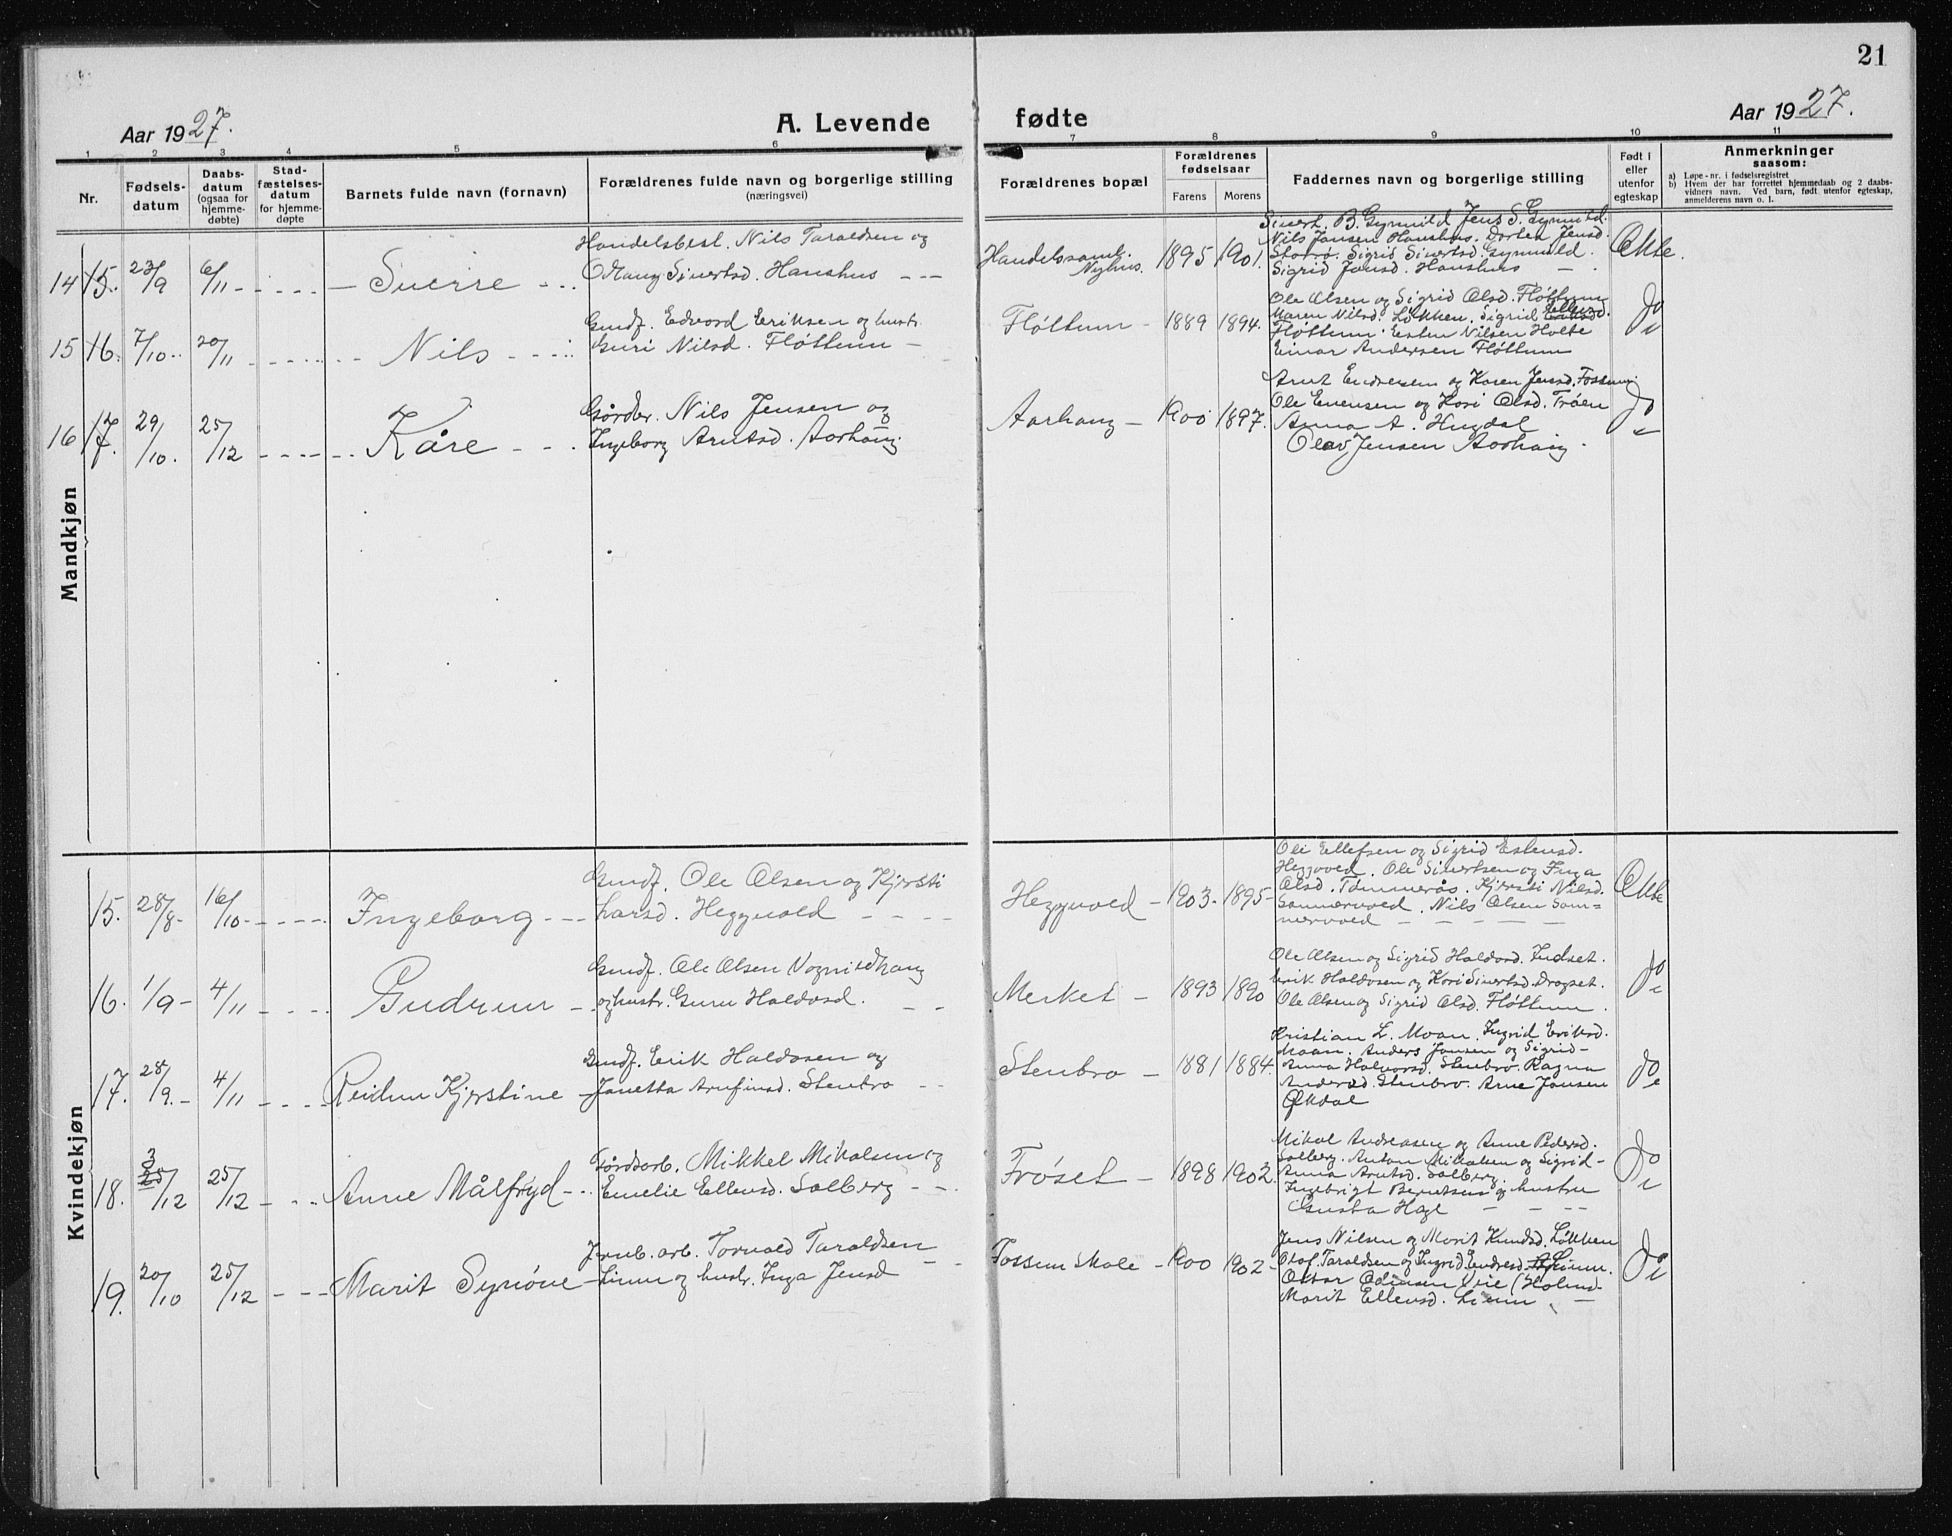 21
Aar 1927.
A. Levende fødte
Aar 1927.
1 2 3 4 5 6 7 8 9 10 11
Nr.
Fødsels-
datum
Daabs-
datum
(ogsaa for
hjemme-
døbte)
Stad-
fæstelses-
datum
for hjemme-
døpte
Barnets fulde navn (fornavn)
Forældrenes fulde navn og borgerlige stilling
(næringsvei)
Forældrenes bopæl
Forældrenes
fødselsaar
Farens Morens
Faddernes navn og borgerlige stilling
Født i
eller
utenfor
egteskap
Anmerkninger
saasom:
a) Løpe-nr. i fødselsregistret
b) Hvem der har forrettet hjemmedaab og 2 daabs-
vidners navn. Ved barn, født utenfor egteskap,
anmelderens navn o. l.
Mandkjøn
14 15. 23/9 6/11 - - - - Sverre - - -
Handelsbest. Nils Taraldsen og
Sivertsd. Hanshus - - -
Handelssaml.
Nyhus.
1895 1901.
Sivert B. Gynnild Jens S. Gynnild.
Nils Jansen Hanshus. Dortea Jensd.
Storrø. Sigrid Sivertsd. Gynnild.
Sigrid Jansd. Hanshus -
Ekte.
15 16. 7/10.. 20/11 - - - - Nils - - -
Gmdf. Edvard Eriksen og hustr.
Guri Nilsd. Fløttum -
Fløttum - 1889 1894.
Ole Olsen og Sigrid Olsd. Fløttum
Maren Nilsd. Løkken, Sigrid
Fløttum. Esten Nilsen Holte
Einar Andersen Fløttum
Do
16 17. 29/10. 25/12 - - - - Kåre - - -
Gårdbr. Nils Jensen og
Ingeborg Arntsd. Aarhaug.
Aarhaug - 1900 1897.
Arnt Endresen og Karen Jensd. Fossum.
Ole Evensen og Kari Olsd. Trøen
Anna A. Hugdal
Olav Jensen Aarhaug.
Do
Kvindekjøn
15. 28/8- 16/10 - - - - Ingeborg - - -
Gmdf. Ole Olsen og Kjersti
Larsd. Heggvold - - - -
Heggvold - 1903. 1895-
Ole Ellefsen og Sigrid Estensd.
Heggvold. Ole Sivertsen og Inga
Olsd. Tømmerås. Kjersti Nilsd.
Sommervold. Nils Olsen Som=
mervold - - - -
Ekte
16. 1/9 - 4/11 - - - Gudrun -
Gmdf. Ole Olsen Vognildhaug
og hustr. Guru Haldosd. - -
Merket - 1893 1890
Ole Olsen og Sigrid Haldosd. Indset.
Erik Haldosen og Kari Sivertsd. Dragset.
Ole Olsen og Sigrid Olsd. Fløttum.
Do
17. 28/9.- 4/11 - - - Reidun Kjerstine -
Gmdf. Erik Haldosen og
Janetta Arnfinsd. Stenbro - -
Stenbro - 1881 1884.
Kristian L. Moan. Ingrid Eriksd.
Moan. Anders Jansen og Sigrid-
Anna Halvorsd. Stenbro. Ragna
Andersd. Stenbro. Arne Jansen
ØKdal
Do
18. 3 25/12 25/12 - - - Anne Målfryd - - -
Gårdsarb. Mikkel Mikalsen og
Emelie Ellensd. Solberg - -
Frøset - 1898 1902.
Mikal Andreasen og Anne Pedersd.
Solberg. Anton Mikalsen og Sigrid-
Anna Arntsd. Solberg.
Ingebrigt Berntsen og hustru
Gusta Hage - - -
Do
19. 20/10 25/12 - - - Marit Synøve -
Jernb. arb. Torvald Taraldsen
Linm og hustr. Inga Jensd - -
Fossum skole - 1900 1902-
Jens Nilsen og Marit Knudsd. Løkken
Olaf Taraldsen og Ingrid Endresd. Linm.
Oskar Odinsen Vie (Holmd-
Marit Ellensd. Linm -
Do